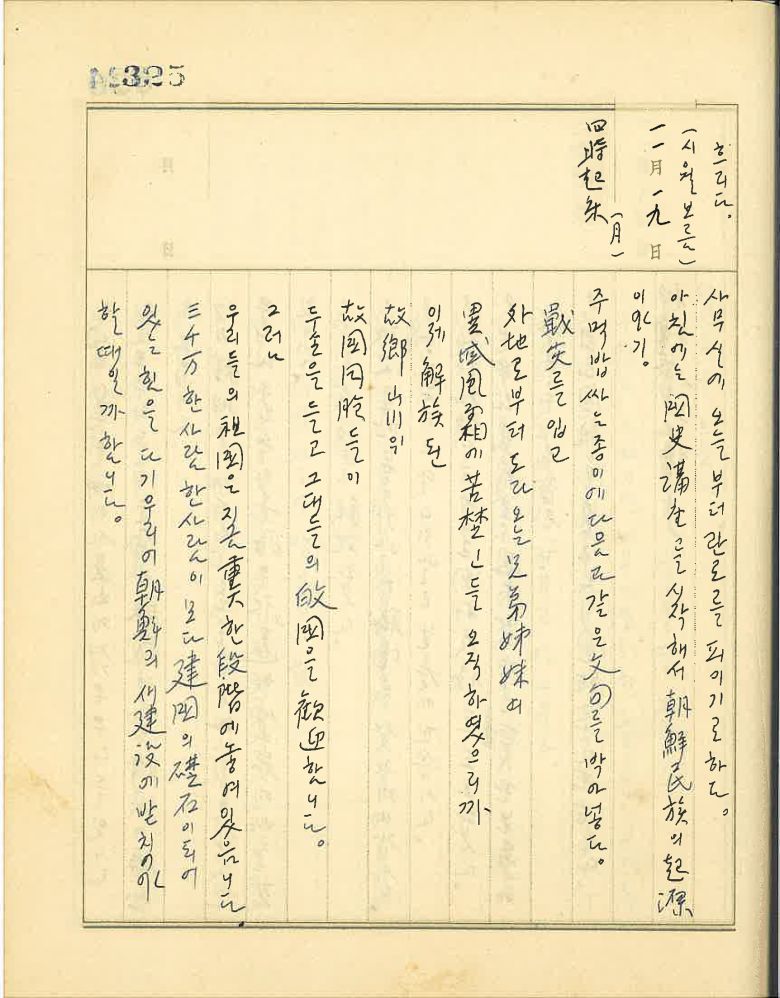 325
흐리다。
(시월보름)
一一月一九日
(月)
四時起床
사무실에 오늘부터 란로를 피이기로 하다。
아침에는 國史講座를 시작해서 朝鮮民族의 起源
이야기。
주먹밥 싸는 종이에 다음과 갈은 文句를 박아 넣다。
戰災를 입고
外地로부터 도라오는 兄弟姊妹여
異域風霜에 苦楚 인들 오직하였으리까
이제 解放된
故鄕山川의
故國同胞들이
두손을 들고 그대들의 故國을 歡迎합니다。
그러나
우리들의 祖國은 지금 重大한 段階에 놓여있읍니다.
三千万 한사람 한사람이 모다 建國의 礎石이 되어
있는 힘을 다기우리어 朝鮮의 새 建設에 받처야
할 때일까 합니다。